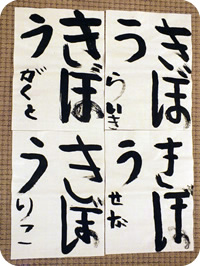 きぼ
う
らいき
きぼ
う
がくと
きぼ
う
せな
きぼ
う
りこ